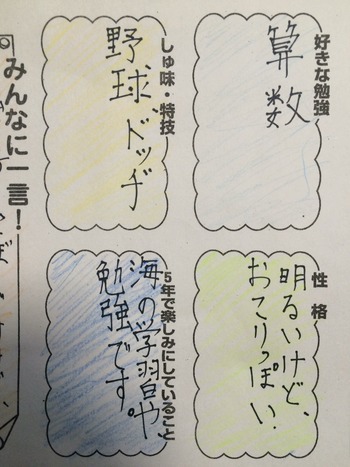 好きな勉強
算数
しゅ味・特技
野球、ドッヂ
性格
明るいけど、
おこりっぽい
5年で楽しみにしていること
海の学習や
勉強です。
みんなに一言！